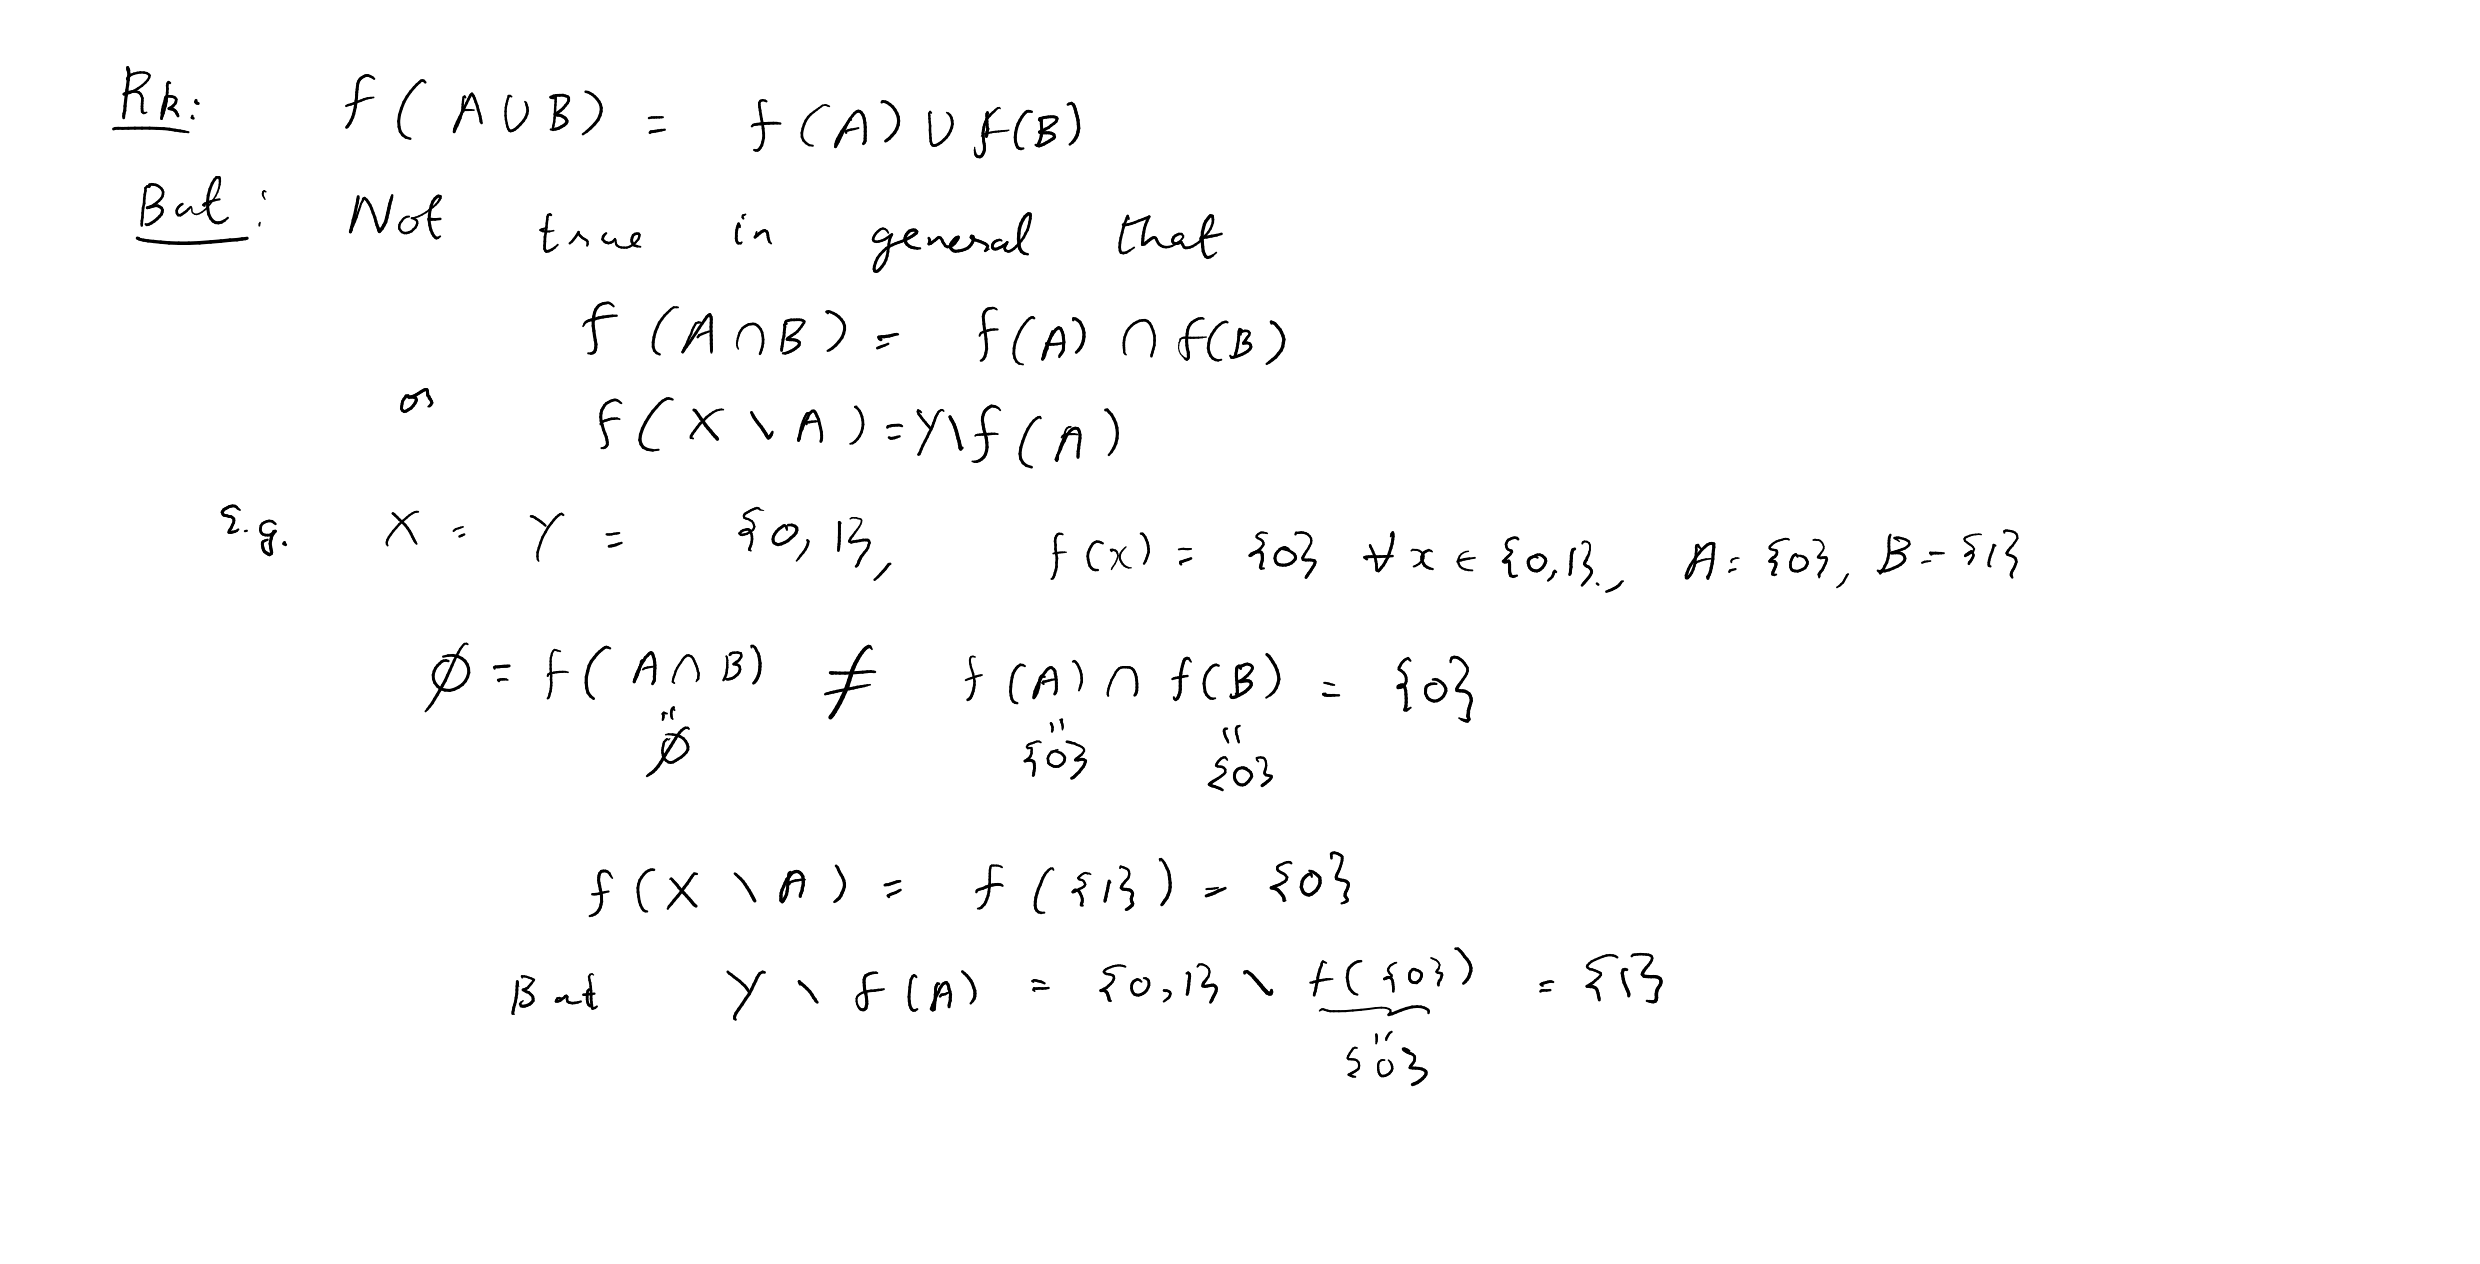 Rk: f(A∪B) = f(A) ∪ f(B)
But: Not true in general that
f(A∩B) = f(A) ∩ f(B)
or f(X \ A) = Y \ f(A)
E.g. X = Y = {0,1}, f(x) = {0} ∀x ∈ {0,1}, A = {0}, B = {1}
∅ = f(A∩B) ≠ f(A) ∩ f(B) = {0}
" " "
∅ {0} {0}
f(X \ A) = f({1}) = {0}
But Y \ f(A) = {0,1} \ f({0}) = {1}
"
{0}